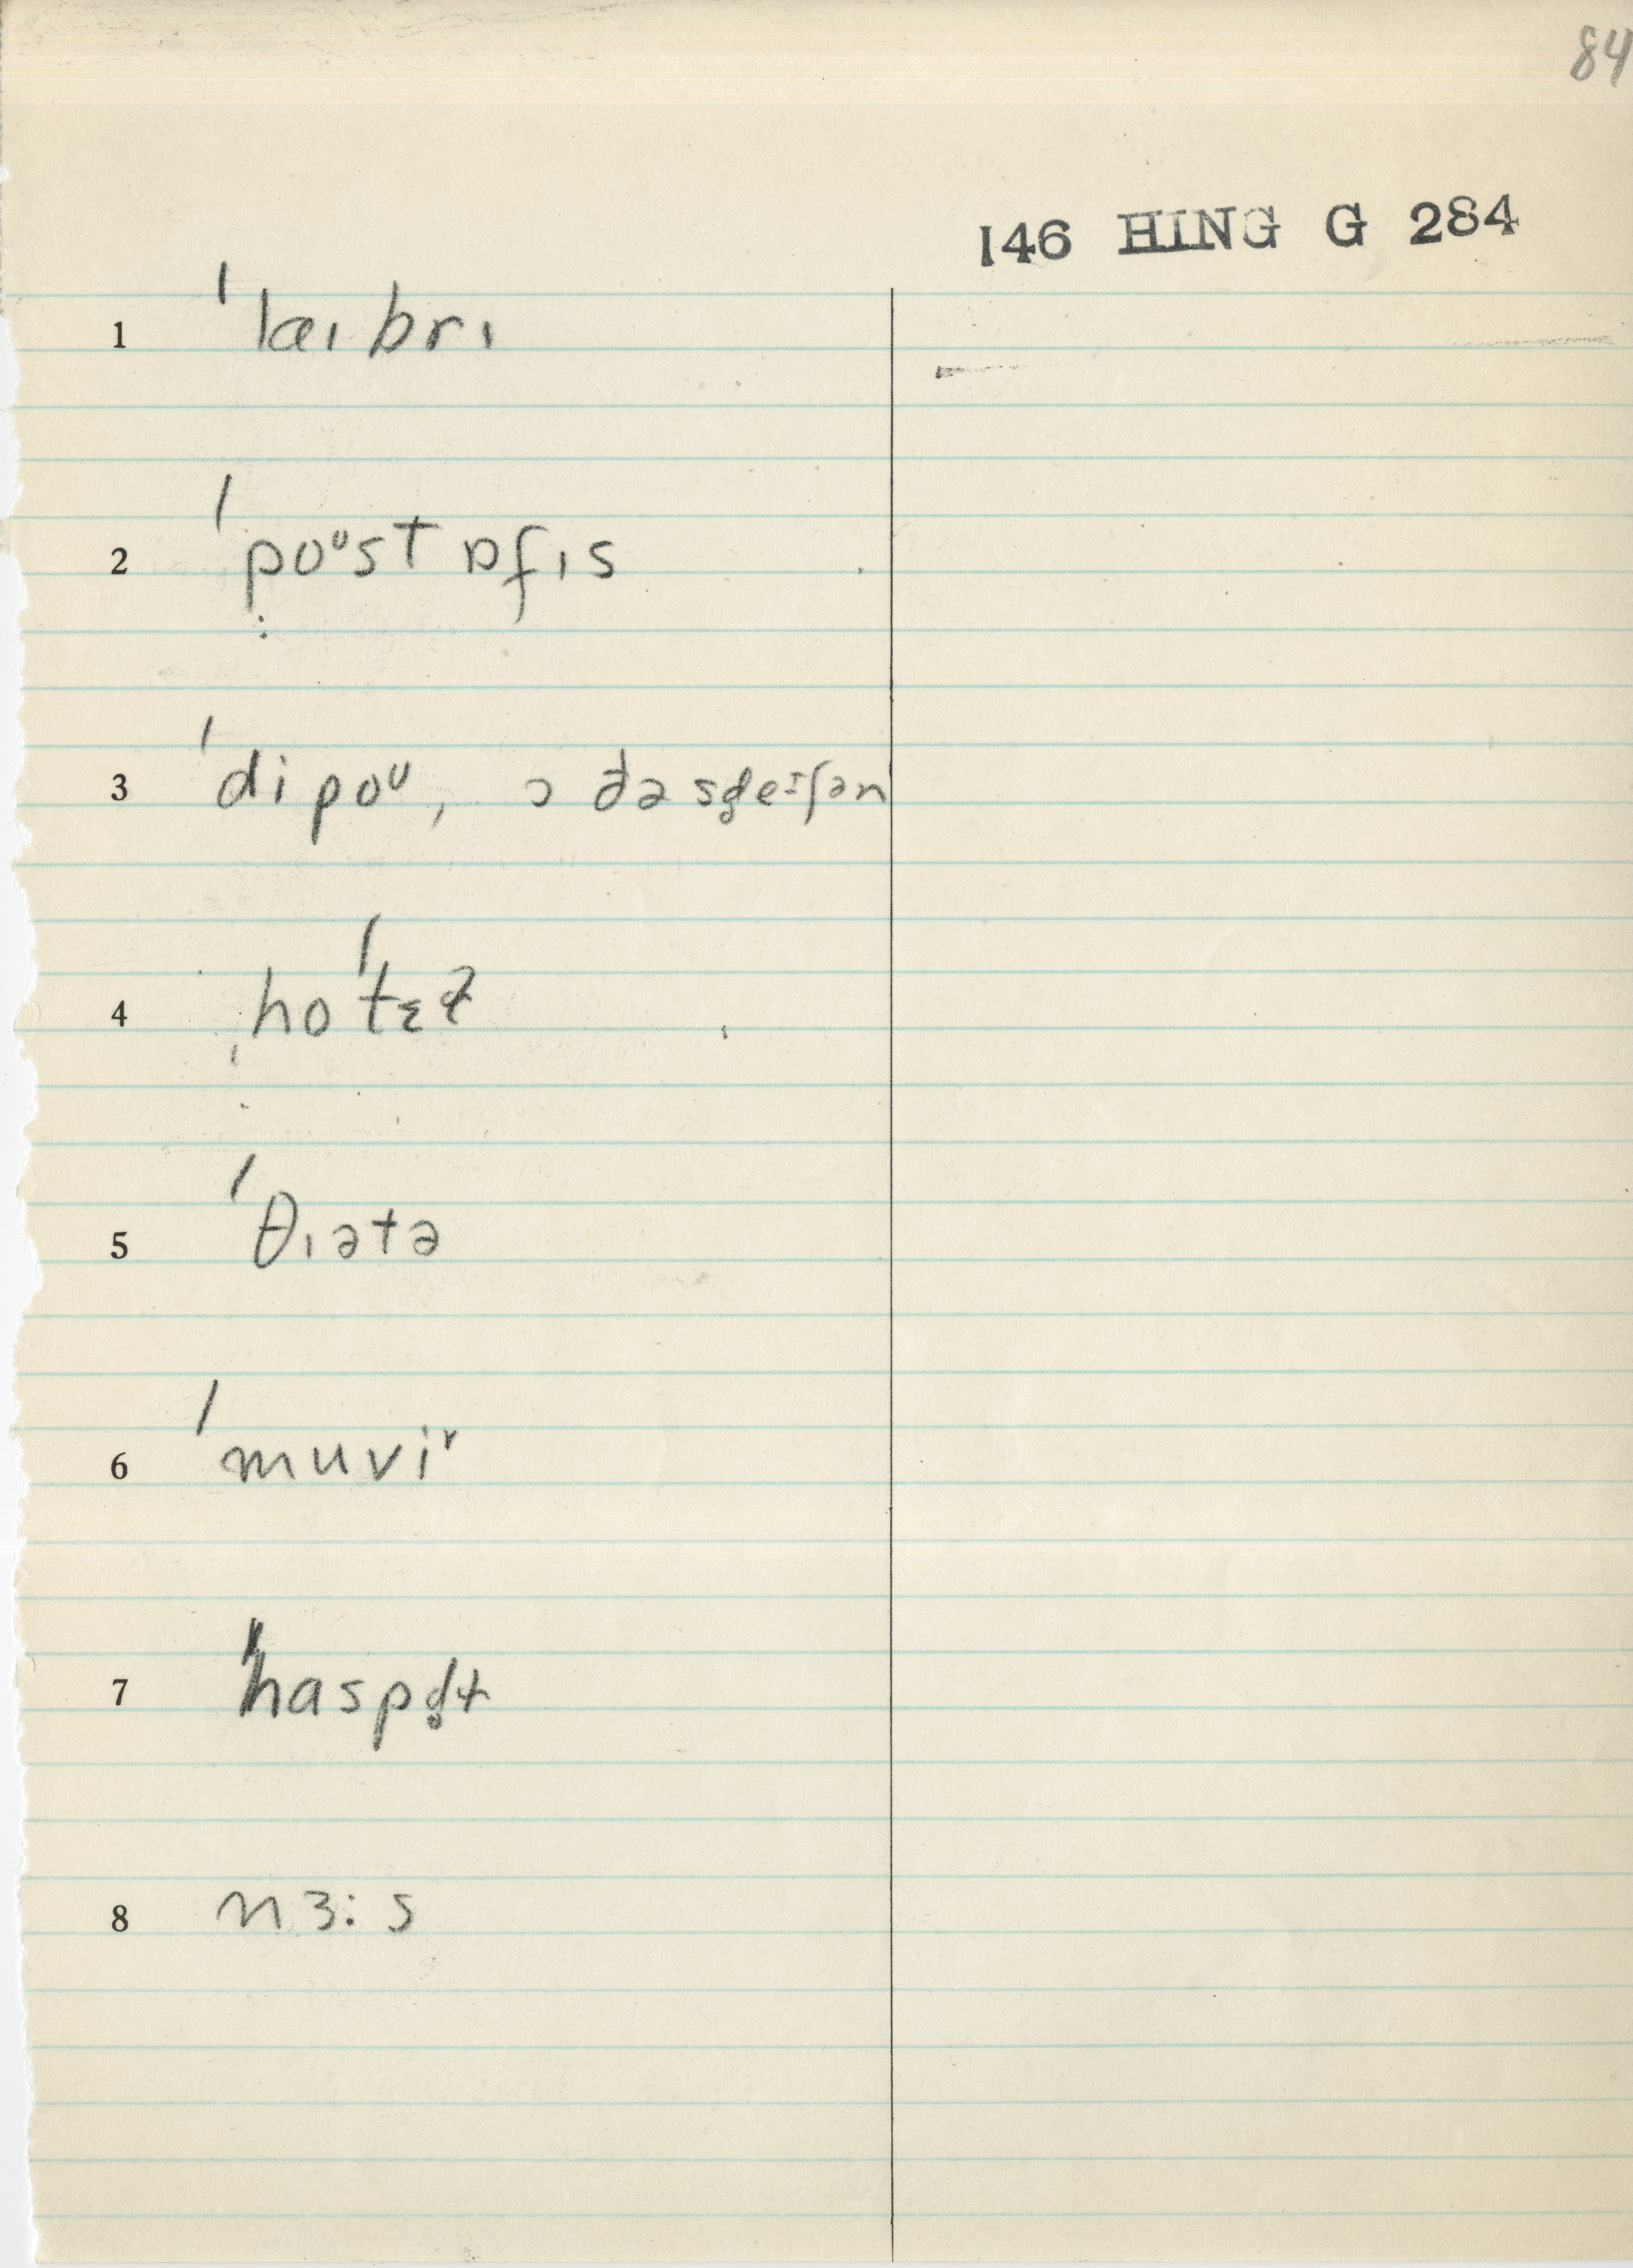 84
146 HING G 284
1 ˈlaɪbrɪ
2 ˈpoᶷst ɒfɪs
3 ˈdipoᶷ, ɔ ðə sd̥eɪʃən
4 hoˈtɛɫ
5 ˈθɪətə
6 ˈmuviᵛ
7 ˈhaspd̥ɫ
8 nɜːs